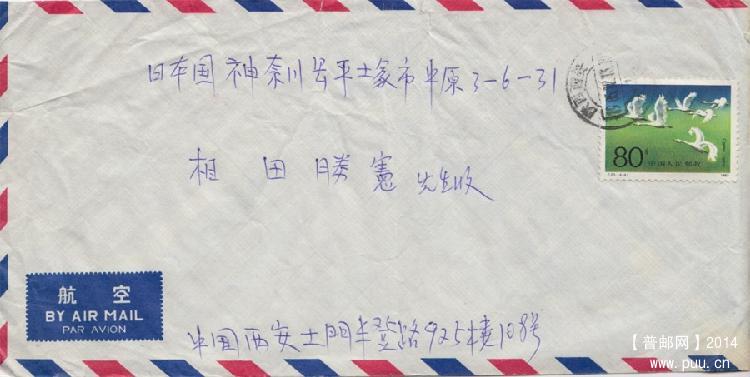 日本国 神奈川县平土塚市中原3-6-31
相田勝憲 先生收
80分
中国人民邮政
航空
BY AIR MAIL
PAR AVION
中国西安土門丰登路925楼108号
【普邮网】2014
www.puu.cn